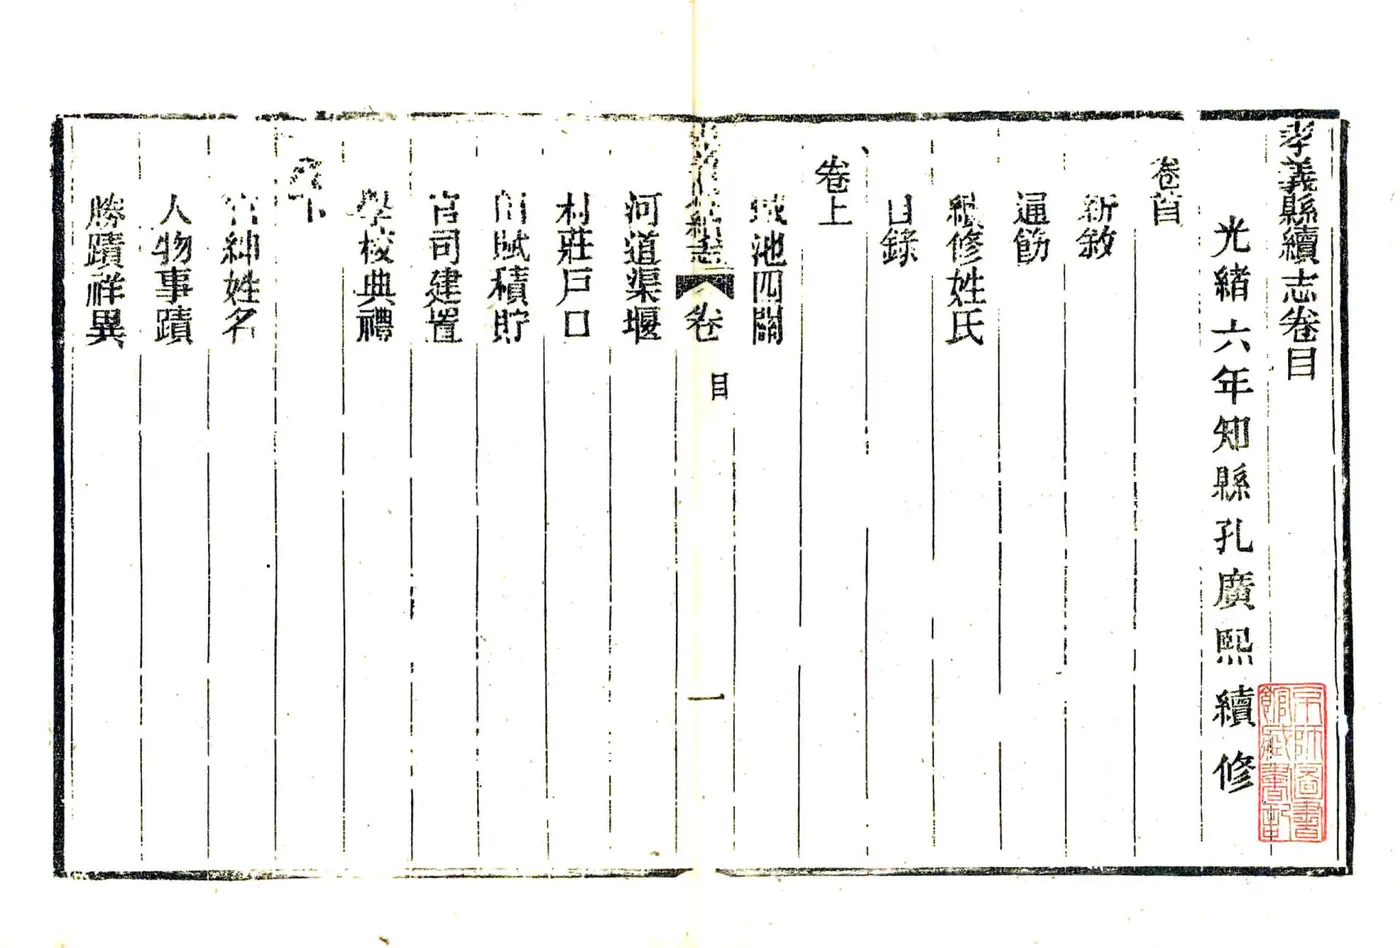 孝義縣續志卷目
光緒六年知縣孔廣熙續修
卷首
新敘
通飭
續修姓氏
目錄
卷上
城池四關
河道渠堰
孝義縣續志
卷目
一
村莊戸口
田賦積貯
官司建置
學校典禮
卷下
官紳姓名
人物事蹟
勝蹟祥異
京師圖書
館藏書記